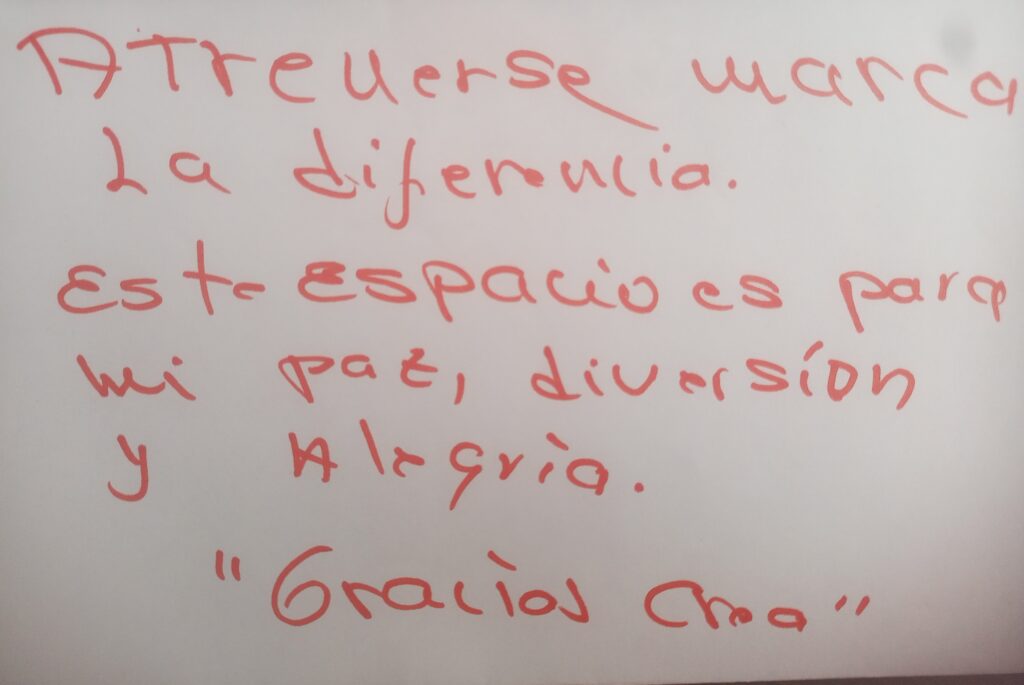 Atreverse marca
La diferencia.
Este espacio es para
mi paz, diversión
y Alegría.
"Gracias Crea"